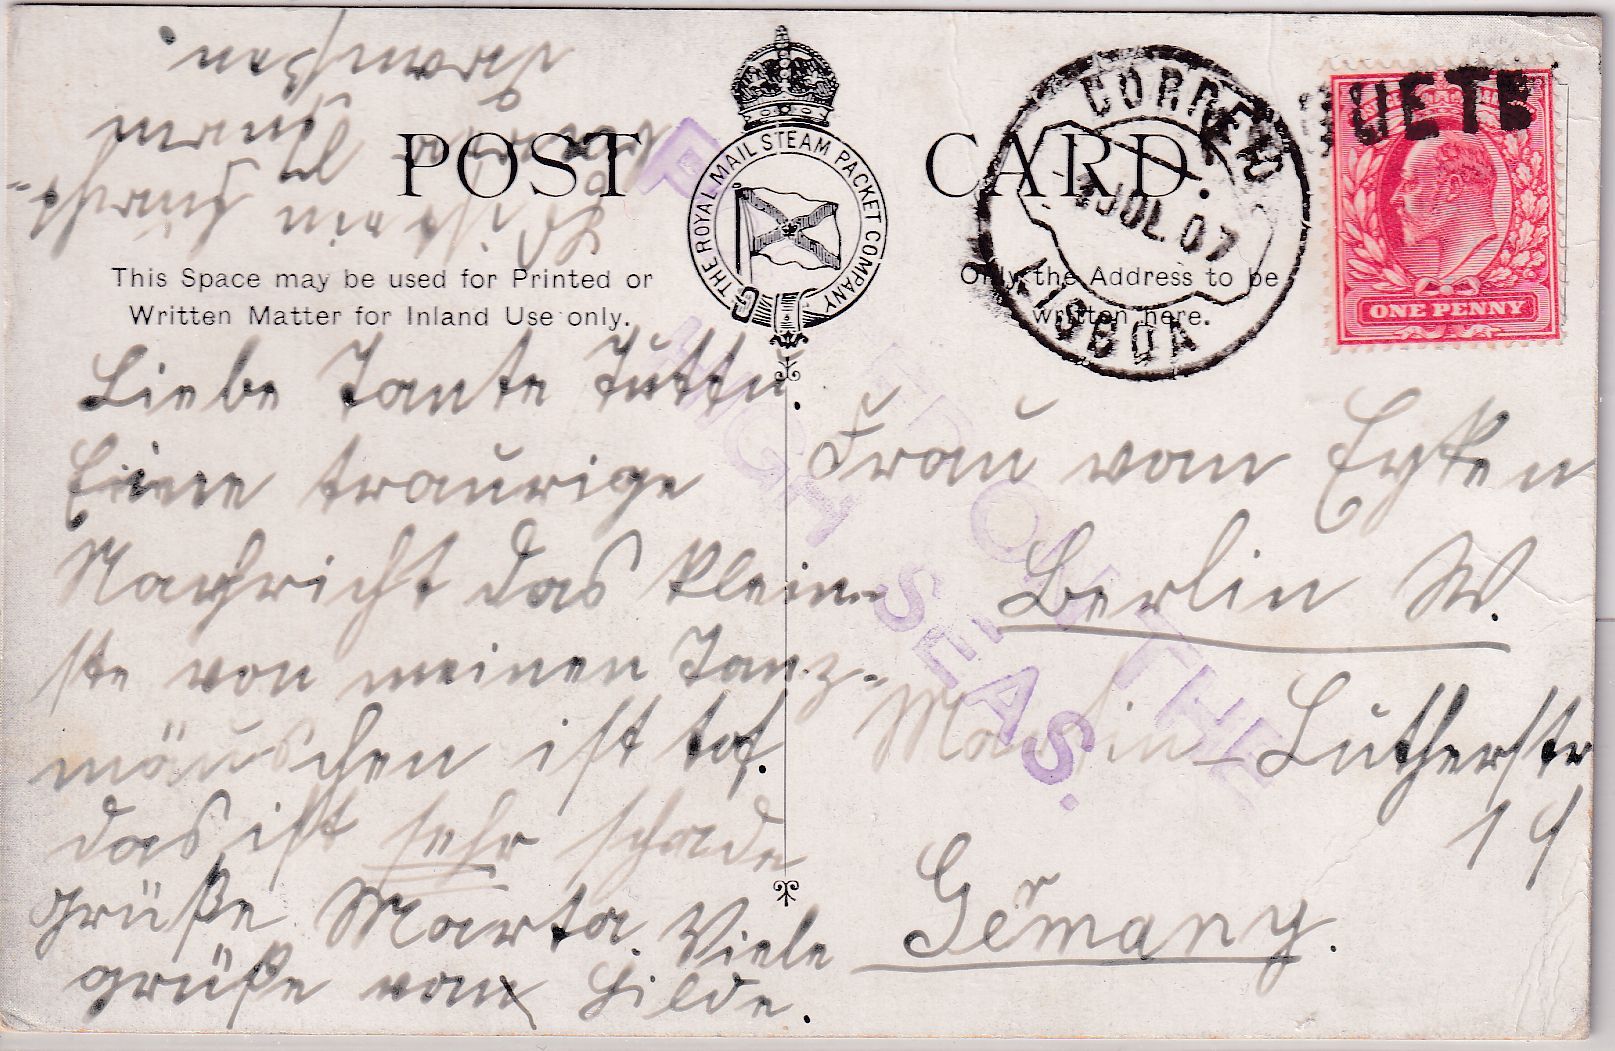 POST CARD.
THE ROYAL MAIL STEAM PACKET COMPANY
This Space may be used for Printed or
Written Matter for Inland Use only.
Only the Address to be
written here.
CORREIO
JUL. 07
LISBOA
UETE
ONE PENNY
ON THE
HIGH SEAS.
Liebe Tante Tuttu.
Eine traurige
Nachricht das klein-
ste von meinen Tanz-
mäuschen ist tot.
das ist sehr schade
grüße Marta. Viele
grüße von Hilde.
Frau van Eyken
Berlin W.
Martin-Lutherstr
Germany.